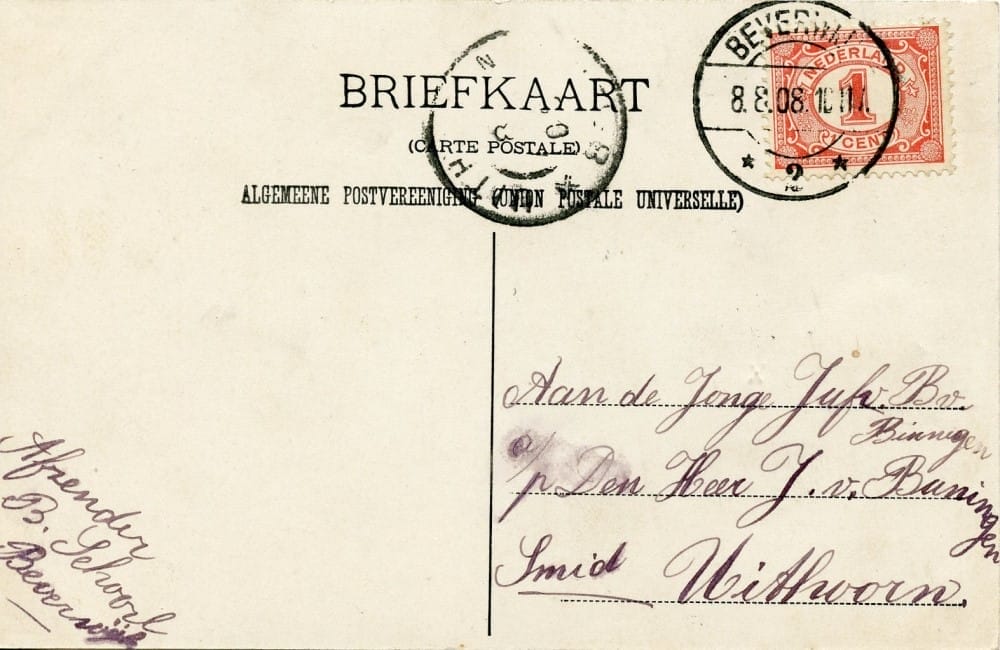 BRIEFKAART
(CARTE POSTALE)
ALGEMEENE POSTVEREENIGING (UNION POSTALE UNIVERSELLE)
BEVERWIJK
8.8.08.
2
NEDERLAND
1
1 CENT
Aan de Jonge Jufv. B v.
Binnigen
a/p Den Heer J. v. Buningen
Smid Uithoorn.
Afzender
B. Schoorl
Beverwijk